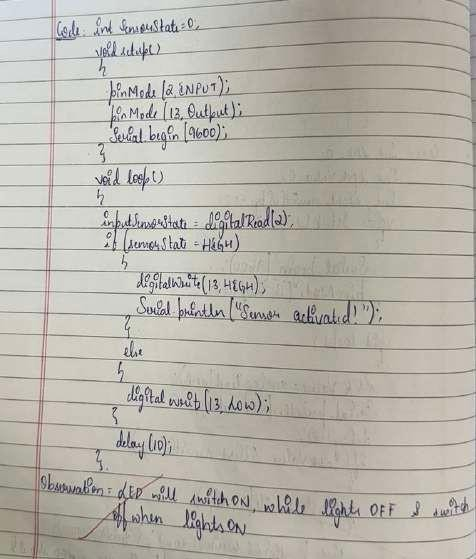 Code: int SensorState=0,
void setup()
{
pinMode(2,INPUT);
pinMode(13,Output);
Serial.begin(9600);
}
void loop()
{
inputSensorState = digitalRead(2);
if (sensorState = HIGH)
{
digitalWrite(13,HIGH);
Serial.println("Sensor activated!");
}
else
{
digital write(13,LOW);
}
delay(10);
}
Observation = LED will switch ON, while lights OFF & switch
off when lights ON